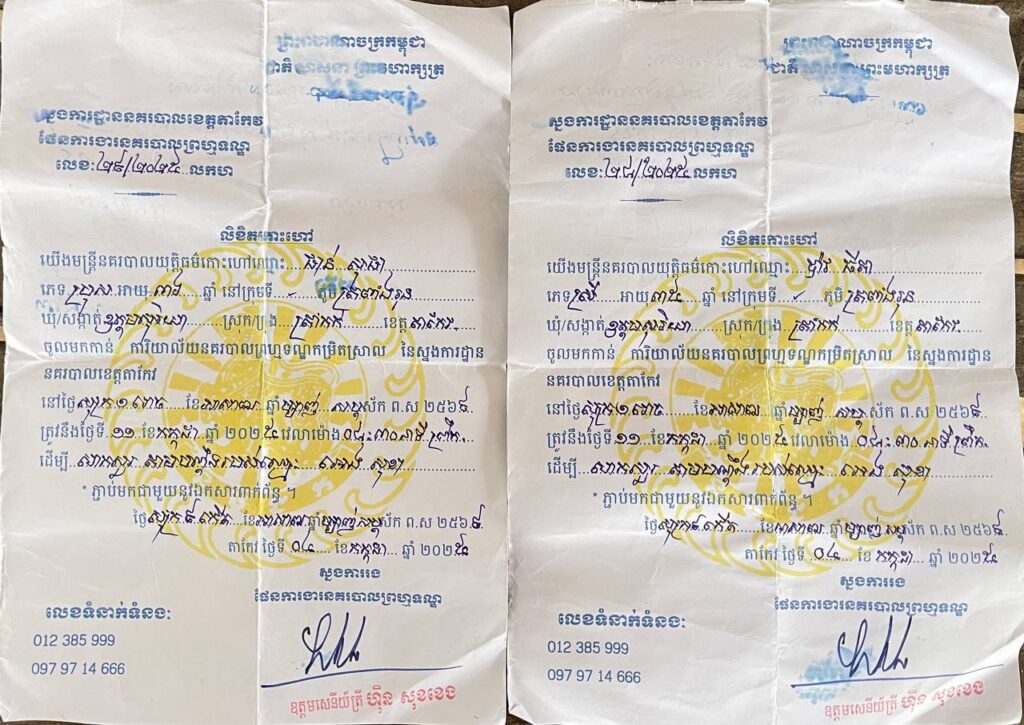 ព្រះរាជាណាចក្រកម្ពុជា
ជាតិ សាសនា ព្រះមហាក្សត្រ
ស្នងការដ្ឋាននគរបាលខេត្តតាកែវ
ផែនការងារនគរបាលព្រហ្មទណ្ឌ
លេខ:២៩/២០២៥ លកហ
លិខិតកោះហៅ
យើងមន្ត្រីនគរបាលយុត្តិធម៌កោះហៅឈ្មោះ
ភេទ ប្រុស អាយុ ឆ្នាំ នៅក្រុមទី ភូមិ
ឃុំ/សង្កាត់ ឧត្តមសុរិយា ស្រុក/ក្រុង ត្រាំកក់ ខេត្ត តាកែវ
ចូលមកកាន់ ការិយាល័យនគរបាលព្រហ្មទណ្ឌកម្រិតស្រាល នៃស្នងការដ្ឋាន
នគរបាលខេត្តតាកែវ
នៅថ្ងៃ សុក្រ ១ រោច ខែ អាសាឍ ឆ្នាំ ម្សាញ់ សប្តស័ក ព.ស ២៥៦៩
ត្រូវនឹងថ្ងៃទី ១១ ខែ កក្កដា ឆ្នាំ ២០២៥ វេលាម៉ោង ០៨:៣០នាទី ព្រឹក
ដើម្បី សាកសួរ តាមបណ្តឹងរបស់ឈ្មោះ សុខា
* ភ្ជាប់មកជាមួយនូវឯកសារពាក់ព័ន្ធ ។
ថ្ងៃ សុក្រ ៩ កើត ខែ អាសាឍ ឆ្នាំ ម្សាញ់ សប្តស័ក ព.ស ២៥៦៩
តាកែវ ថ្ងៃទី ០៤ ខែ កក្កដា ឆ្នាំ ២០២៥
ស្នងការរង
ផែនការងារនគរបាលព្រហ្មទណ្ឌ
លេខទំនាក់ទំនង:
012 385 999
097 97 14 666
ឧត្តមសេនីយ៍ត្រី ហ៊ិន សុខខេង
ព្រះរាជាណាចក្រកម្ពុជា
ជាតិ សាសនា ព្រះមហាក្សត្រ
ស្នងការដ្ឋាននគរបាលខេត្តតាកែវ
ផែនការងារនគរបាលព្រហ្មទណ្ឌ
លេខ:២៨/២០២៥ លកហ
លិខិតកោះហៅ
យើងមន្ត្រីនគរបាលយុត្តិធម៌កោះហៅឈ្មោះ
ភេទ ស្រី អាយុ ៣៥ ឆ្នាំ នៅក្រុមទី ភូមិ
ឃុំ/សង្កាត់ ឧត្តមសុរិយា ស្រុក/ក្រុង ត្រាំកក់ ខេត្ត តាកែវ
ចូលមកកាន់ ការិយាល័យនគរបាលព្រហ្មទណ្ឌកម្រិតស្រាល នៃស្នងការដ្ឋាន
នគរបាលខេត្តតាកែវ
នៅថ្ងៃ សុក្រ ១ រោច ខែ អាសាឍ ឆ្នាំ ម្សាញ់ សប្តស័ក ព.ស ២៥៦៩
ត្រូវនឹងថ្ងៃទី ១១ ខែ កក្កដា ឆ្នាំ ២០២៥ វេលាម៉ោង ០៨:៣០នាទី ព្រឹក
ដើម្បី សាកសួរ តាមបណ្តឹងរបស់ឈ្មោះ សុខា
* ភ្ជាប់មកជាមួយនូវឯកសារពាក់ព័ន្ធ ។
ថ្ងៃ សុក្រ ៩ កើត ខែ អាសាឍ ឆ្នាំ ម្សាញ់ សប្តស័ក ព.ស ២៥៦៩
តាកែវ ថ្ងៃទី ០៤ ខែ កក្កដា ឆ្នាំ ២០២៥
ស្នងការរង
ផែនការងារនគរបាលព្រហ្មទណ្ឌ
លេខទំនាក់ទំនង:
012 385 999
097 97 14 666
ឧត្តមសេនីយ៍ត្រី ហ៊ិន សុខខេង